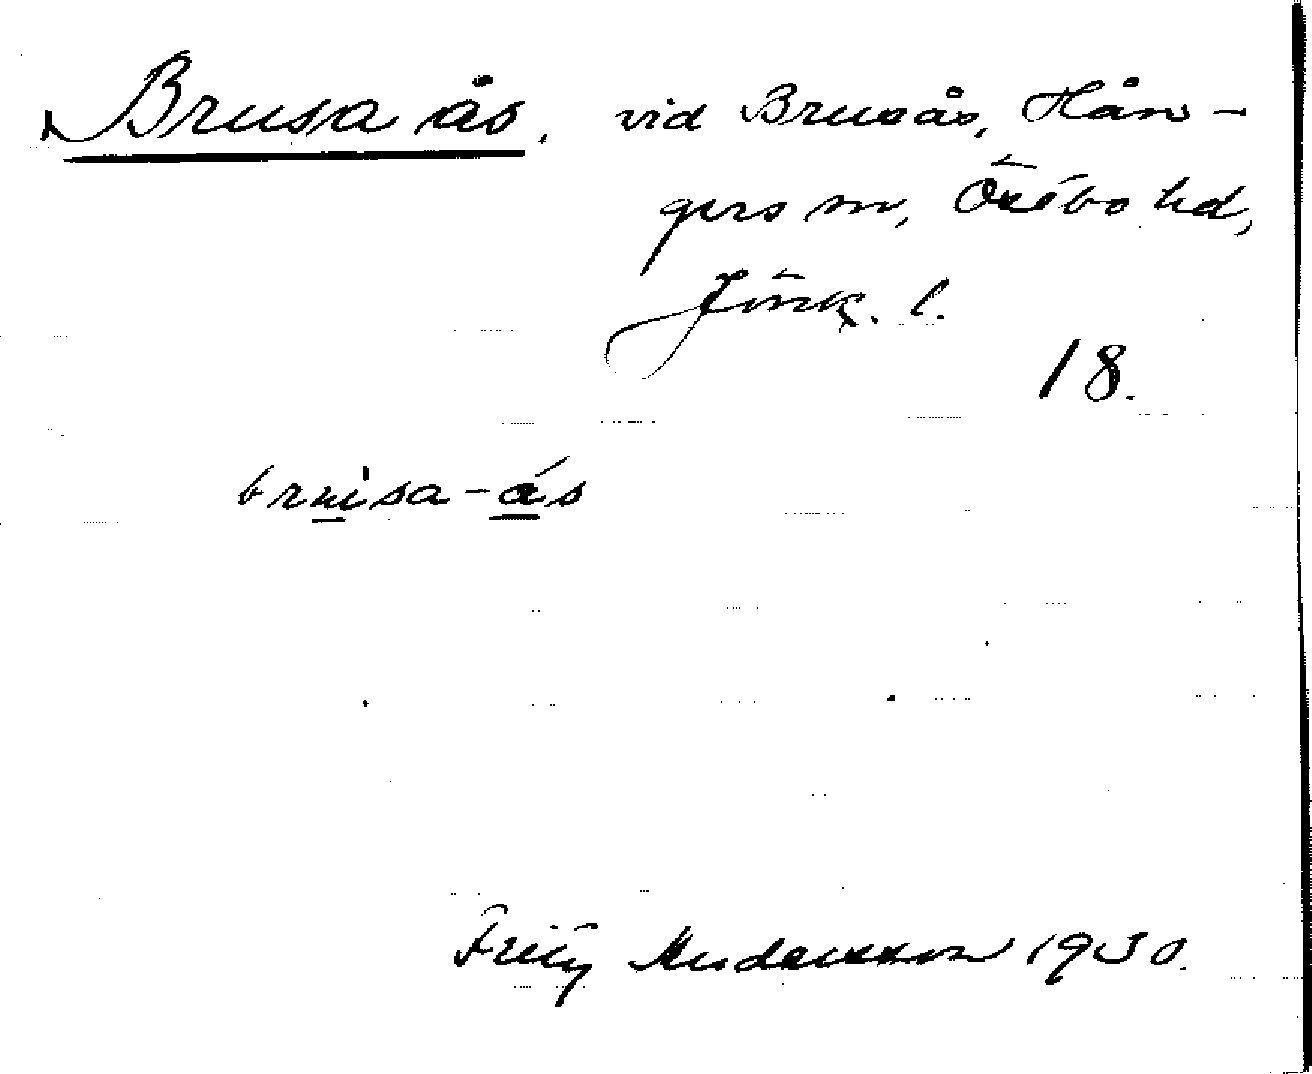 Brusa ås, vid Brusås, Hån-
gers sn, Östbo hd,
Jönk. l.
18.
brusa-ås
Fritz Andersson 1930.